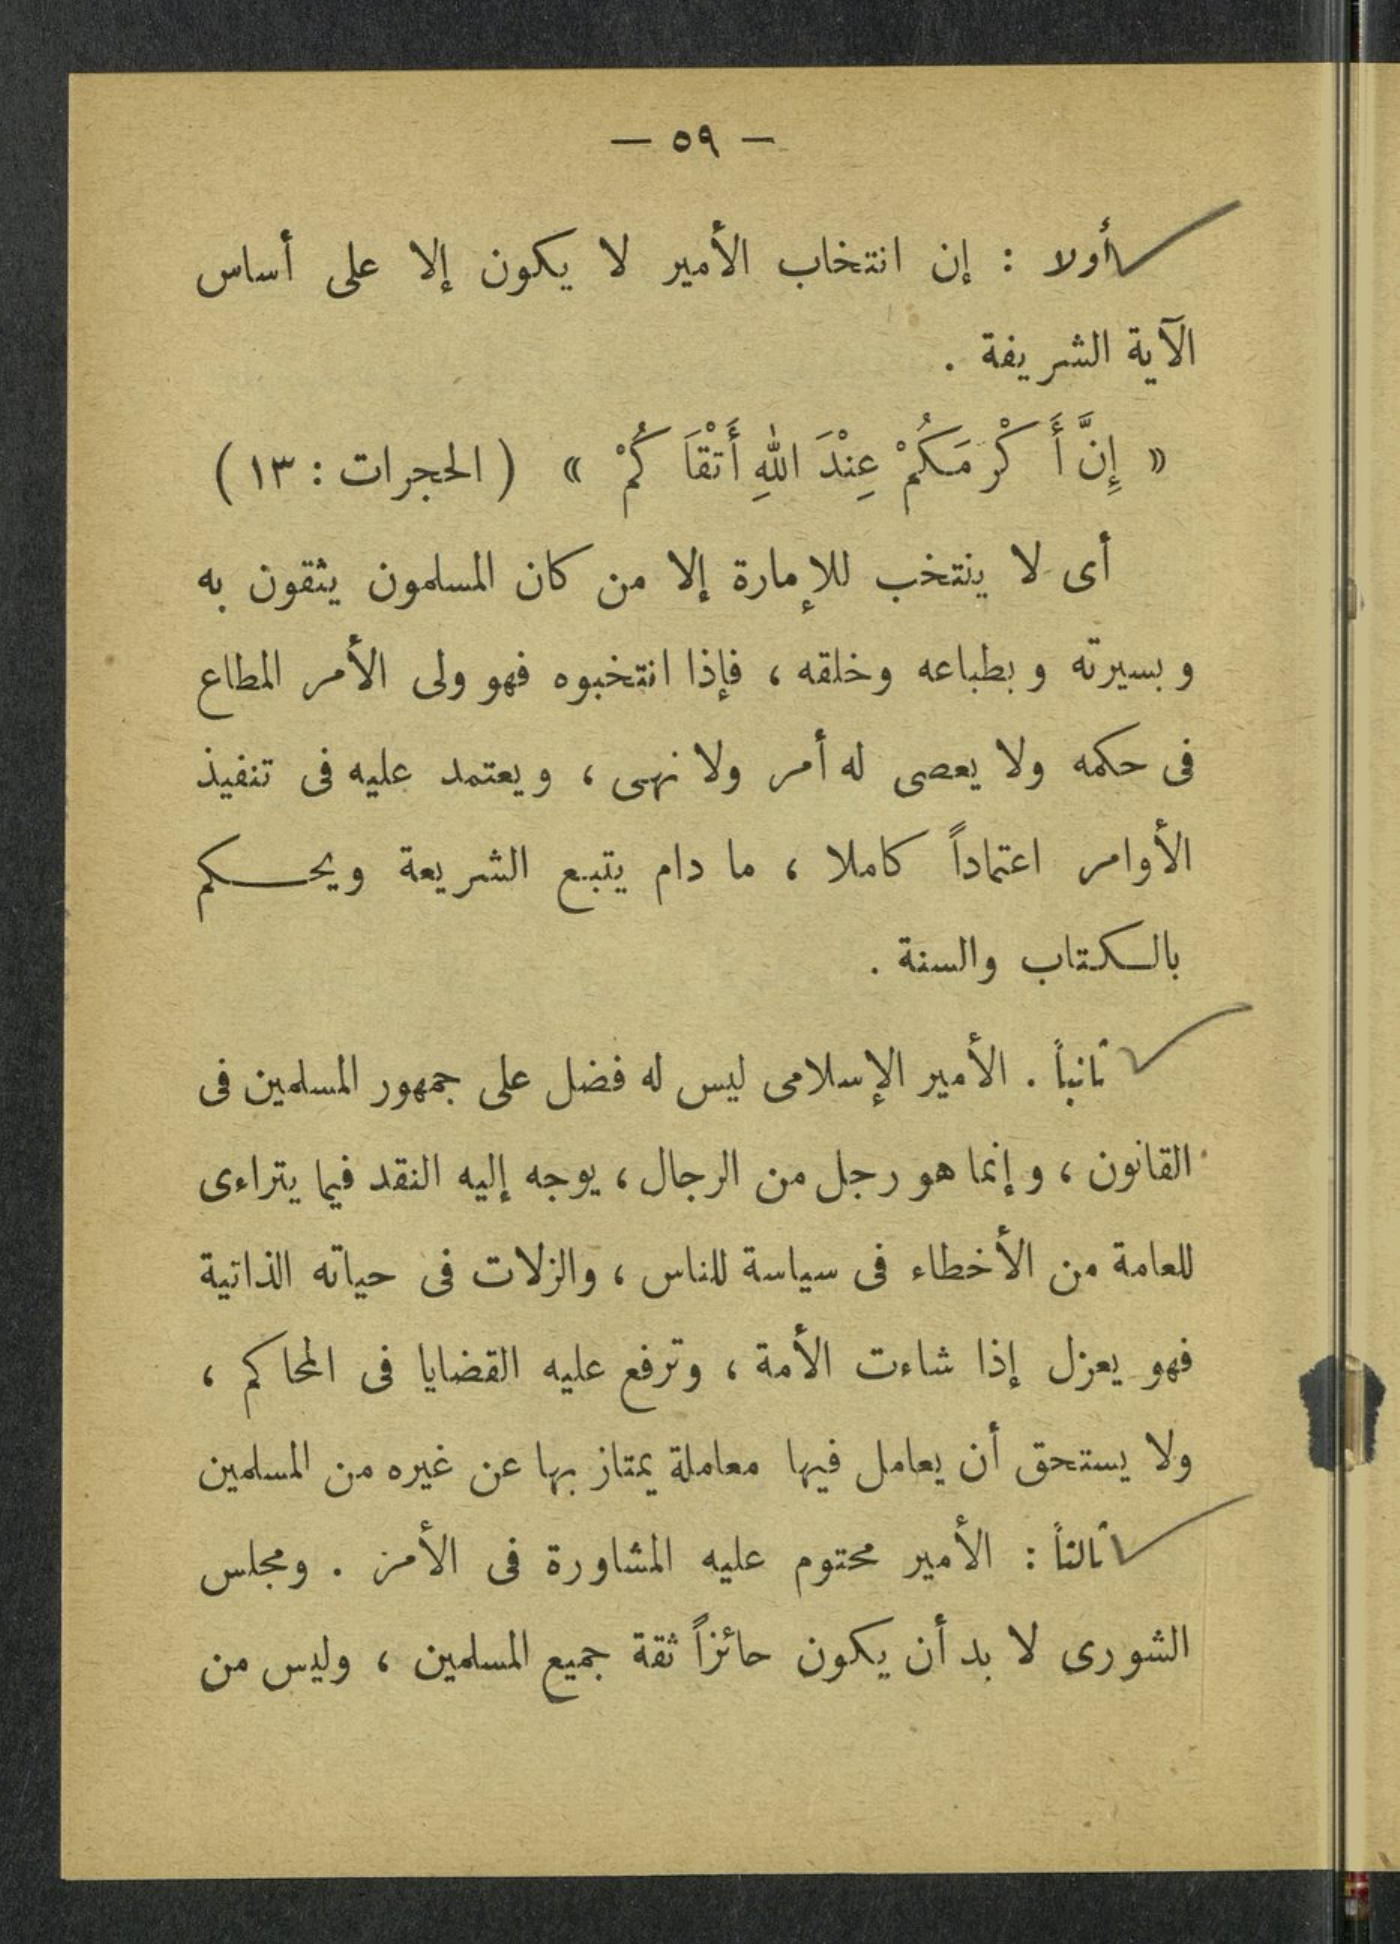 — ٥٩ —
أولا : إن انتخاب الأمير لا يكون إلا على أساس
الآية الشريفة .
« إِنَّ أَكْرَمَكُمْ عِنْدَ اللهِ أَتْقَاكُمْ » ( الحجرات : ١٣ )
أى لا ينتخب للإمارة إلا من كان المسلمون يثقون به
وبسيرته وبطباعه وخلقه ، فإذا انتخبوه فهو ولى الأمر المطاع
فى حكمه ولا يعصى له أمر ولا نهى ، ويعتمد عليه فى تنفيذ
الأوامر اعتماداً كاملا ، ما دام يتبع الشريعة ويحكم
بالكتاب والسنة .
ثانياً . الأمير الإسلامى ليس له فضل على جمهور المسلمين فى
القانون ، وإنما هو رجل من الرجال ، يوجه إليه النقد فيما يتراءى
للعامة من الأخطاء فى سياسة للناس ، والزلات فى حياته الذاتية
فهو يعزل إذا شاءت الأمة ، وترفع عليه القضايا فى المحاكم ،
ولا يستحق أن يعامل فيها معاملة يمتاز بها عن غيره من المسلمين
ثالثاً : الأمير محتوم عليه المشاورة فى الأمر . ومجلس
الشورى لا بد أن يكون حائزاً ثقة جميع المسلمين ، وليس من